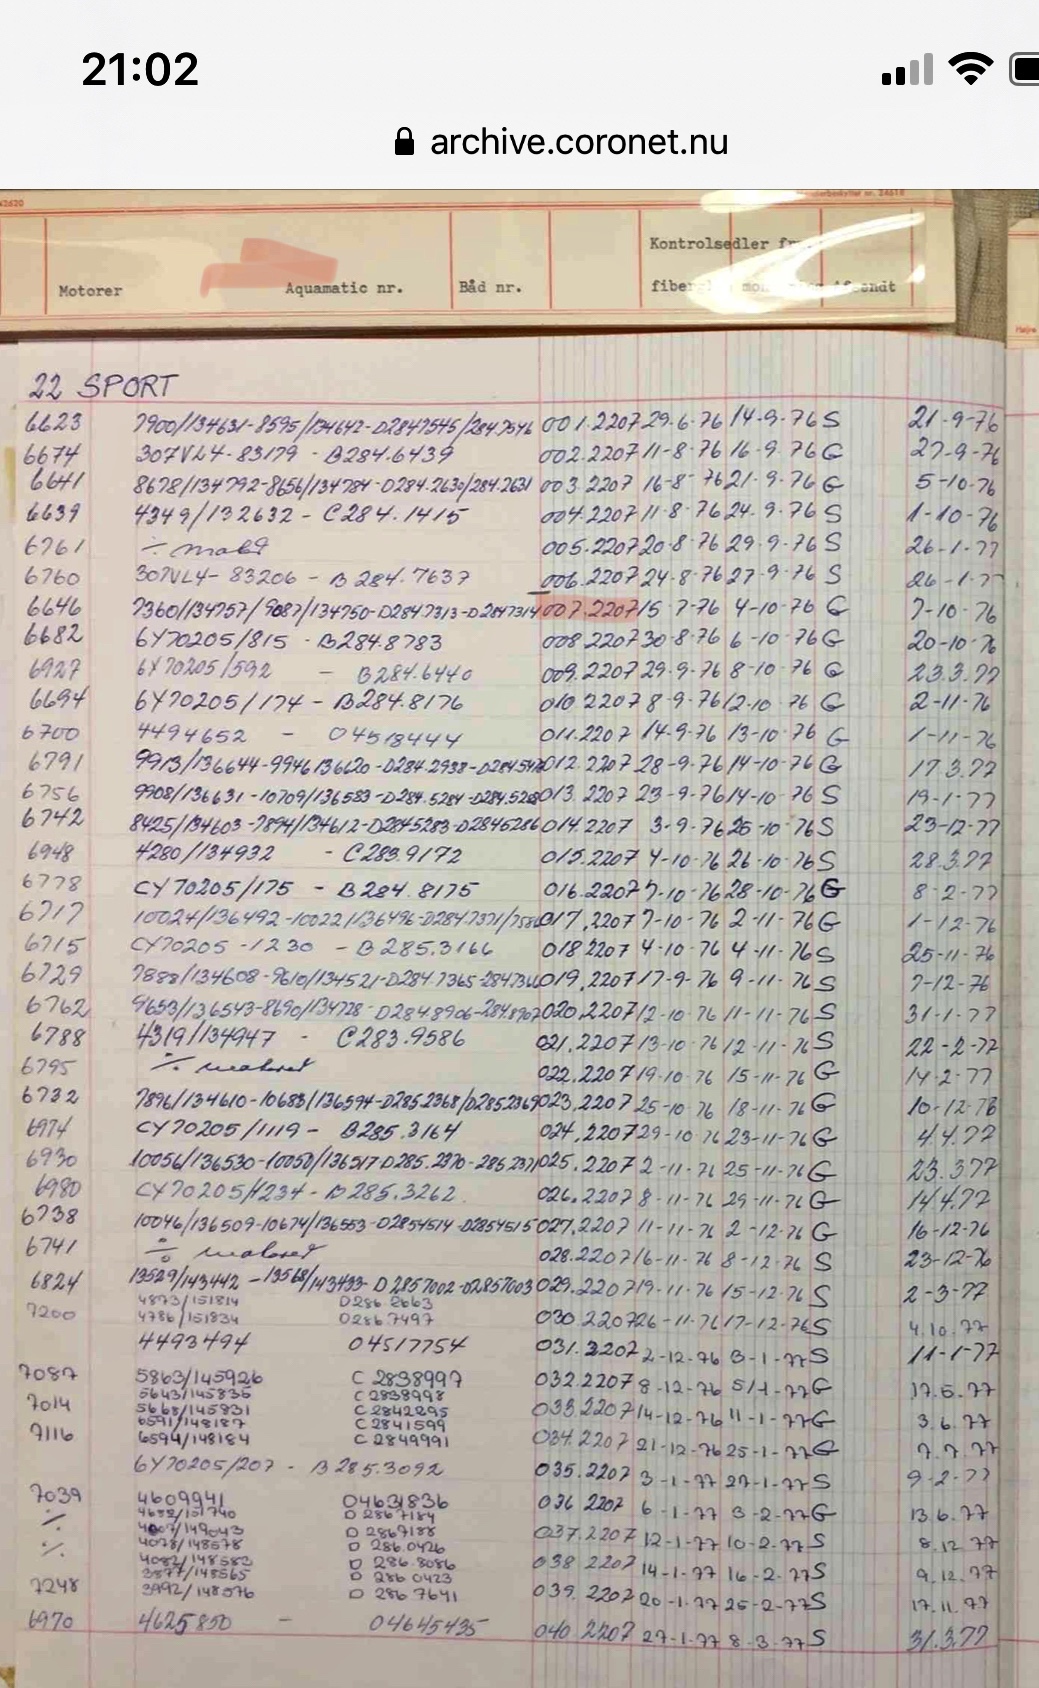 21:02
archive.coronet.nu
42620
Kontrolsedler fra
Motorer Aquamatic nr. Båd nr.
22 SPORT
6623 7900/134631-8595/134642-D2847545/284.7546 001.2207 29-6-76 14-9-76 S 21-9-76
6674 307VL4-83179 - B284.6439 002.2207 11-8-76 16-9-76 G 27-9-76
6641 8678/134792-8656/134784-D284.2630/284.2631 003.2207 16-8-76 21-9-76 G 5-10-76
6639 4349/132632 - C284.1415 004.2207 11-8-76 24-9-76 S 1-10-76
6761 ÷ 005.2207 20-8-76 29-9-76 S 26-1-77
6760 307VL4-83206 - B284.7637 006.2207 24-8-76 27-9-76 S 26-1-77
6646 7360/134757/9087/134750-D2847313-D2847314 007.2207 15-7-76 4-10-76 G 7-10-76
6682 6Y70205/815 - B284.8783 008.2207 30-8-76 6-10-76 G 20-10-76
6927 6Y70205/592 - B284.6440 009.2207 29-9-76 8-10-76 G 23.3.77
6694 6Y70205/174 - B284.8176 010.2207 8-9-76 12-10-76 G 2-11-76
6700 4494652 - 04518444 011.2207 14-9-76 13-10-76 G 1-11-76
6791 9913/136644-9946/136620-D284.2938- 012.2207 28-9-76 14-10-76 G 17.3.77
6756 9908/136631-10709/136583-D284.5284- 013.2207 23-9-76 14-10-76 S 19-1-77
6742 8425/134603-7894/134612-D2845283-D2845286 014.2207 3-9-76 25-10-76 S 23-12-77
6948 4280/134932 - C283.9172 015.2207 4-10-76 26-10-76 S 28.3.77
6778 CY70205/175 - B284.8175 016.2207 7-10-76 28-10-76 G 8-2-77
6717 10024/136492-10022/136496-D2847371/ 017.2207 7-10-76 2-11-76 G 1-12-76
6715 CY70205-1230 - B285.3166 018.2207 4-10-76 4-11-76 S 25-11-76
6729 7888/134608-9610/134521-D284.7365- 019.2207 17-9-76 9-11-76 S 7-12-76
6762 9653/136543-8690/134728-D2848906-284.8907 020.2207 12-10-76 11-11-76 S 31-1-77
6788 4319/134947 - C283.9586 021.2207 13-10-76 12-11-76 S 22-2-77
6795 ÷ 022.2207 19-10-76 15-11-76 G 14-2-77
6732 7896/134610-10683/136594-D285.2368/D2852369 023.2207 25-10-76 18-11-76 G 10-12-76
6974 CY70205/1119 - B285.3164 024.2207 29-10-76 23-11-76 G 4.4.77
6930 10056/136530-10050/136517 D285.2370-285.2371 025.2207 2-11-76 25-11-76 G 23.3.77
6980 CY70205/1234 - B285.3262 026.2207 8-11-76 29-11-76 G 14.4.77
6738 10046/136509-10674/136553-D2854514-D2854515 027.2207 11-11-76 2-12-76 G 16-12-76
6741 ÷ 028.2207 16-11-76 8-12-76 S 23-12-76
6824 13529/143442-13568/143433-D2857002-D2857003 029.2207 19-11-76 15-12-76 S 2-3-77
4873/151814 D286.2663
7200 4786/151834 D286.7497 030.2207 26-11-76 17-12-76 S 4.10.77
4493494 04517754 031.2207 2-12-76 3-1-77 S 11-1-77
7087 5863/145926 C2838997 032.2207 8-12-76 5/1-77 G 17.5.77
5643/145835 C2838998
7014 5668/145831 C2842295 033.2207 14-12-76 11-1-77 G 3.6.77
6591/148187 C2841599
7116 6594/148184 C2849991 034.2207 21-12-76 25-1-77 G 7.7.77
6Y70205/207 - B285.3092 035.2207 3-1-77 27-1-77 S 9-2-77
7039 4609941 04631836 036.2207 6-1-77 3-2-77 G 13.6.77
4682/151740 D2867184
÷ 4007/149043 D2867188 037.2207 12-1-77 10-2-77 S 8.12.77
4078/148578 D286.0426
÷ 4082/148583 D286.8086 038.2207 14-1-77 16-2-77 S 9.12.77
3877/148565 D286.0423
7248 3992/148576 D286.7641 039.2207 20-1-77 25-2-77 S 17.11.77
6970 4625850 - 04645435 040.2207 27-1-77 8-3-77 S 31.3.77